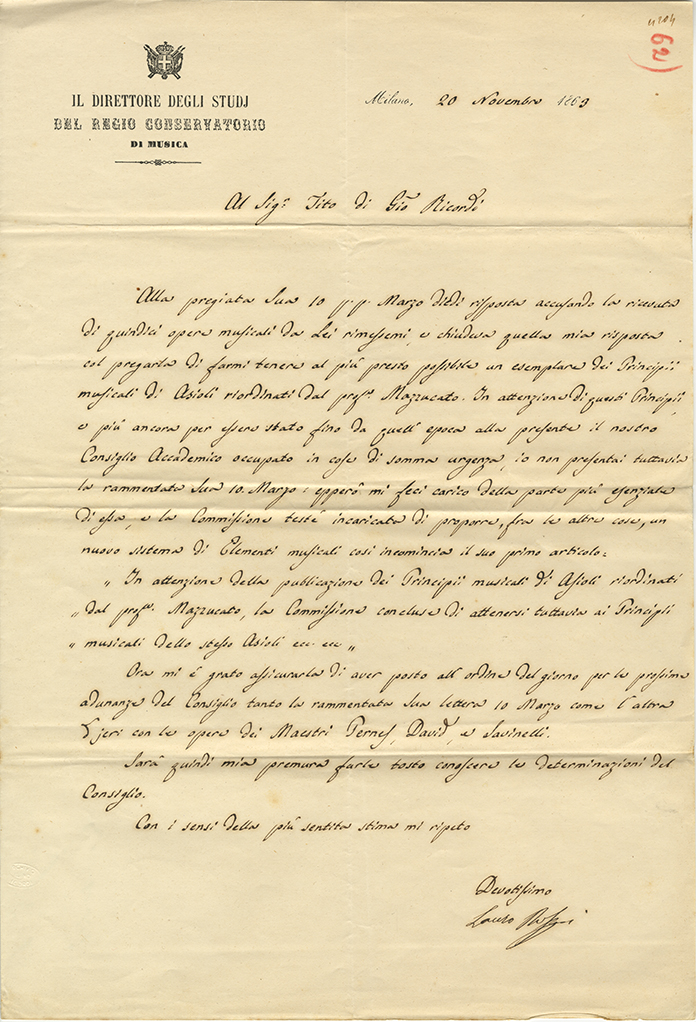 4204
62)
IL DIRETTORE DEGLI STUDJ
DEL REGIO CONSERVATORIO
DI MUSICA
Milano, 20 Novembre 1869
Al Sig.r Tito di Gio Ricordi
Alla pregiata Sua 10 p.p. Marzo diedi risposta accusando la ricevuta
di quindici opere musicali da Lei rimessemi, e chiudeva quella mia risposta
col pregarla di farmi tenere al più presto possibile un esemplare dei Principii
musicali di Asioli riordinati dal prof.r Mazzucato. In attenzione di questi Principii,
e più ancora per essere stato fino da quell'epoca alla presente il nostro
Consiglio Accademico occupato in cose di somma urgenza, io non presentai tuttavia
la rammentata Sua 10. Marzo: epperò mi feci carico della parte più esenziale
di essa, e la Commissione testé incaricata di proporre, fra le altre cose, un
nuovo sistema di Elementi musicali così incomincia il suo primo articolo:
„ In attenzione della publicazione dei Principii musicali di Asioli riordinati
„ dal prof.r Mazzucato, la Commissione concluse di attenersi tuttavia ai Principii
„ musicali dello stesso Asioli ecc. ecc „
Ora mi é grato assicurarla di aver posto all'ordine del giorno per le prossime
adunanze del Consiglio tanto la rammentata Sua lettera 10 Marzo come l'altra
jeri con le opere dei Maestri Pernes, David, e Savinelli.
Sarà quindi mia premura farle tosto conoscere le determinazioni del
Consiglio.
Con i sensi della più sentita stima mi ripeto
Devotissimo
Lauro Rossi